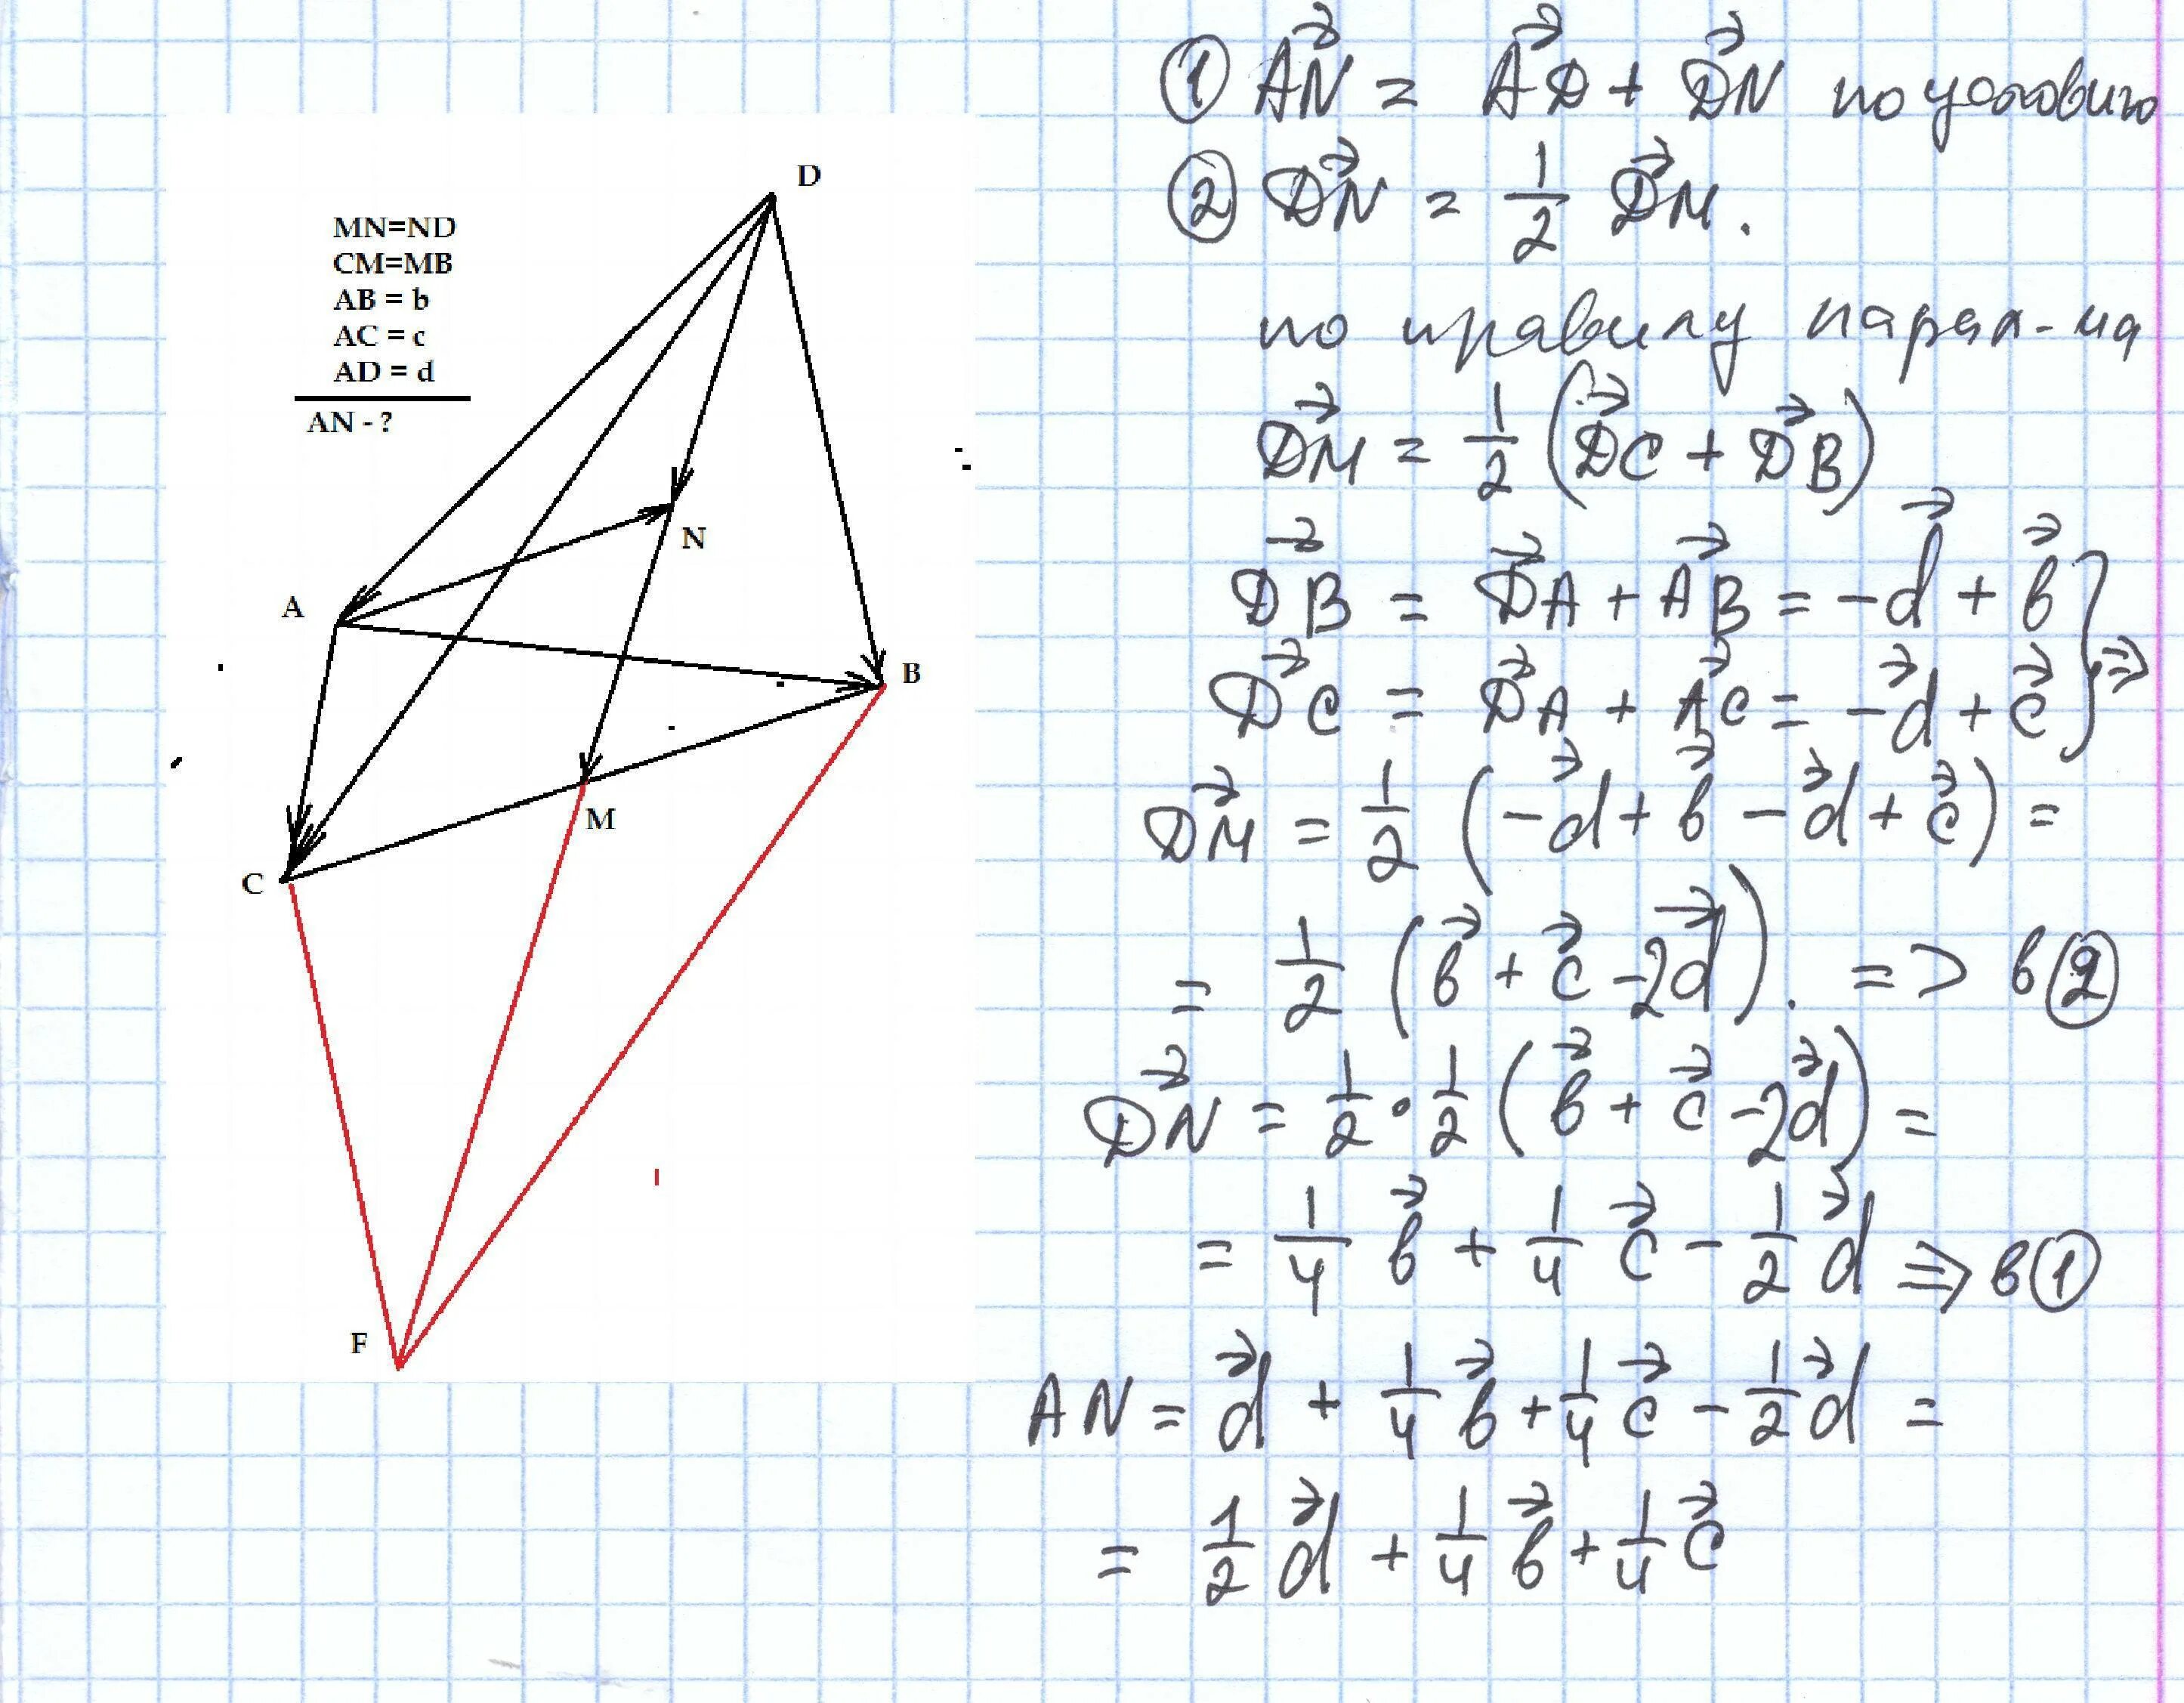 D
MN=ND
CM=MB
AB = b
AC = c
AD = d
AN - ?
N
A
B
M
C
F
① AN⃗ = AD⃗ + DN⃗ по условию
② DN⃗ = 1/2 DM⃗.
по правилу парал-ма
DM⃗ = 1/2 (DC⃗ + DB⃗)
DB⃗ = DA⃗ + AB⃗ = -d⃗ + b⃗ }
DC⃗ = DA⃗ + AC⃗ = -d⃗ + c⃗ } =>
DM⃗ = 1/2 (-d⃗ + b⃗ - d⃗ + c⃗) =
= 1/2 (b⃗ + c⃗ - 2d⃗). => в ②
DN⃗ = 1/2 · 1/2 (b⃗ + c⃗ - 2d⃗) =
= 1/4 b⃗ + 1/4 c⃗ - 1/2 d⃗ => в ①
AN = d⃗ + 1/4 b⃗ + 1/4 c⃗ - 1/2 d⃗ =
= 1/2 d⃗ + 1/4 b⃗ + 1/4 c⃗